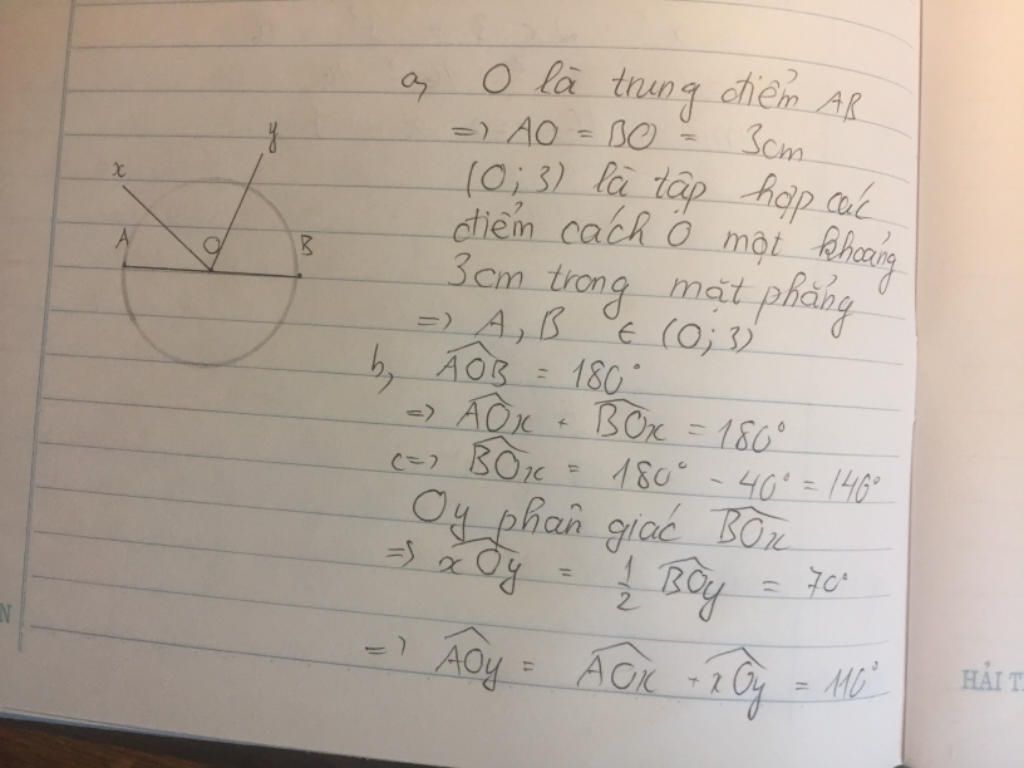 a, O là trung điểm AB
=> AO = BO = 3cm
(O; 3) là tập hợp các
điểm cách O một khoảng
3cm trong mặt phẳng
=> A, B ∈ (O; 3)
b, AOB = 180°
=> AOx + BOx = 180°
<=> BOx = 180° - 40° = 140°
Oy phân giác BOx
=> xOy = 1/2 BOy = 70°
=> AOy = AOx + xOy = 110°
x
y
A
O
B
N